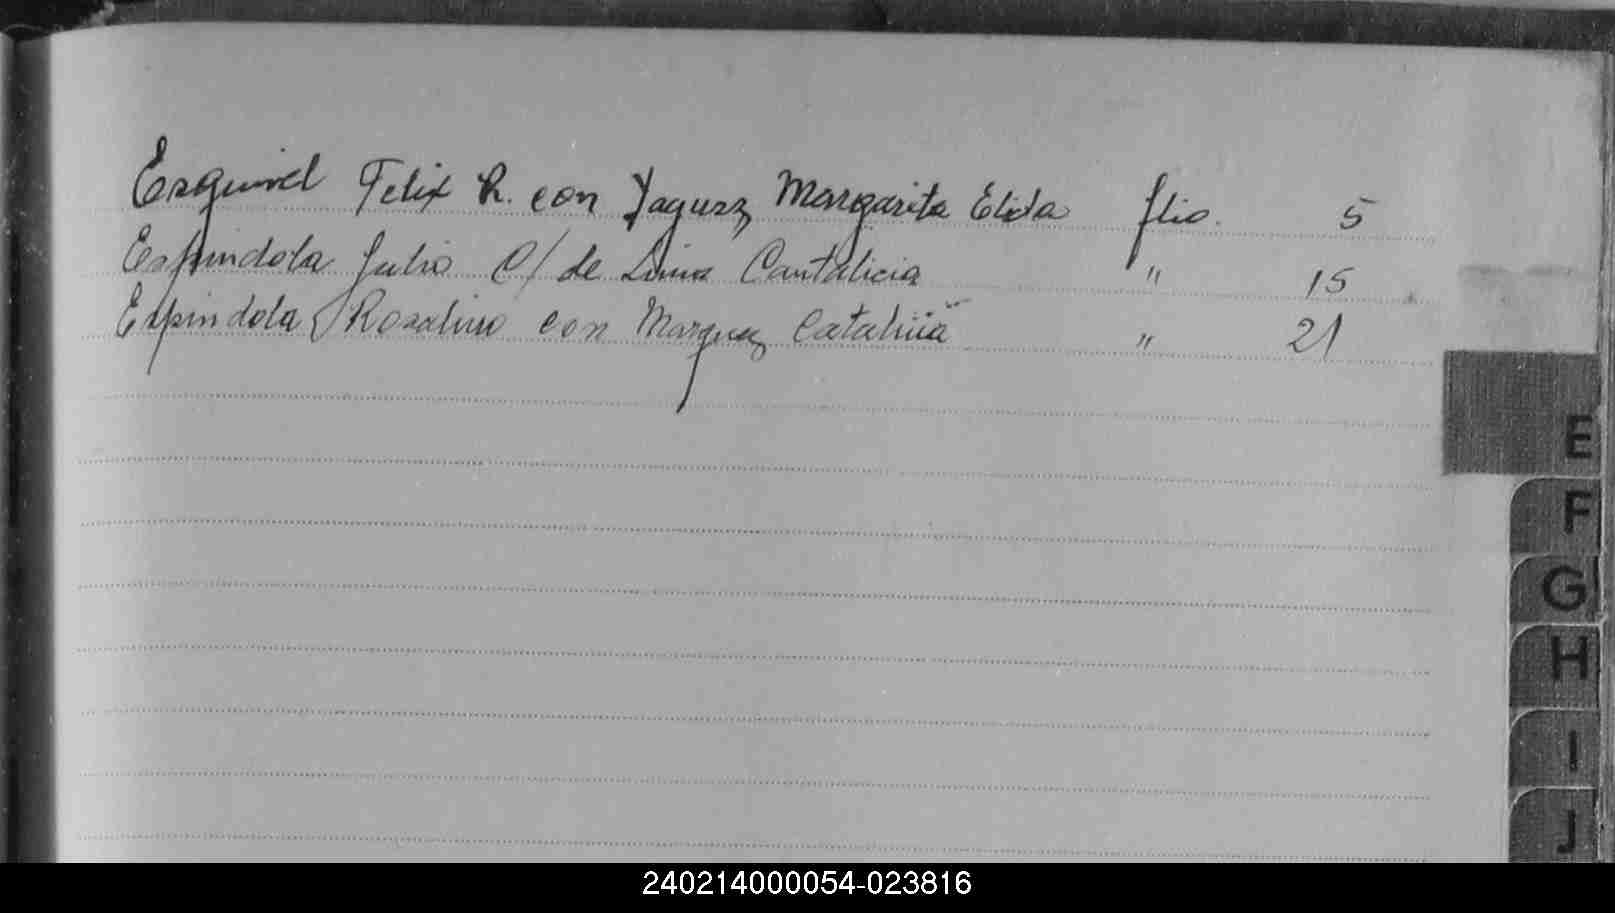 Esquivel Felix R. con Yaguez Margarita Elida flio. 5
Espindola Julio C/ de Lima Cantalicia " 15
Espindola Rosalino con Marquez Catalina " 21
E
F
G
H
I
J
240214000054-023816